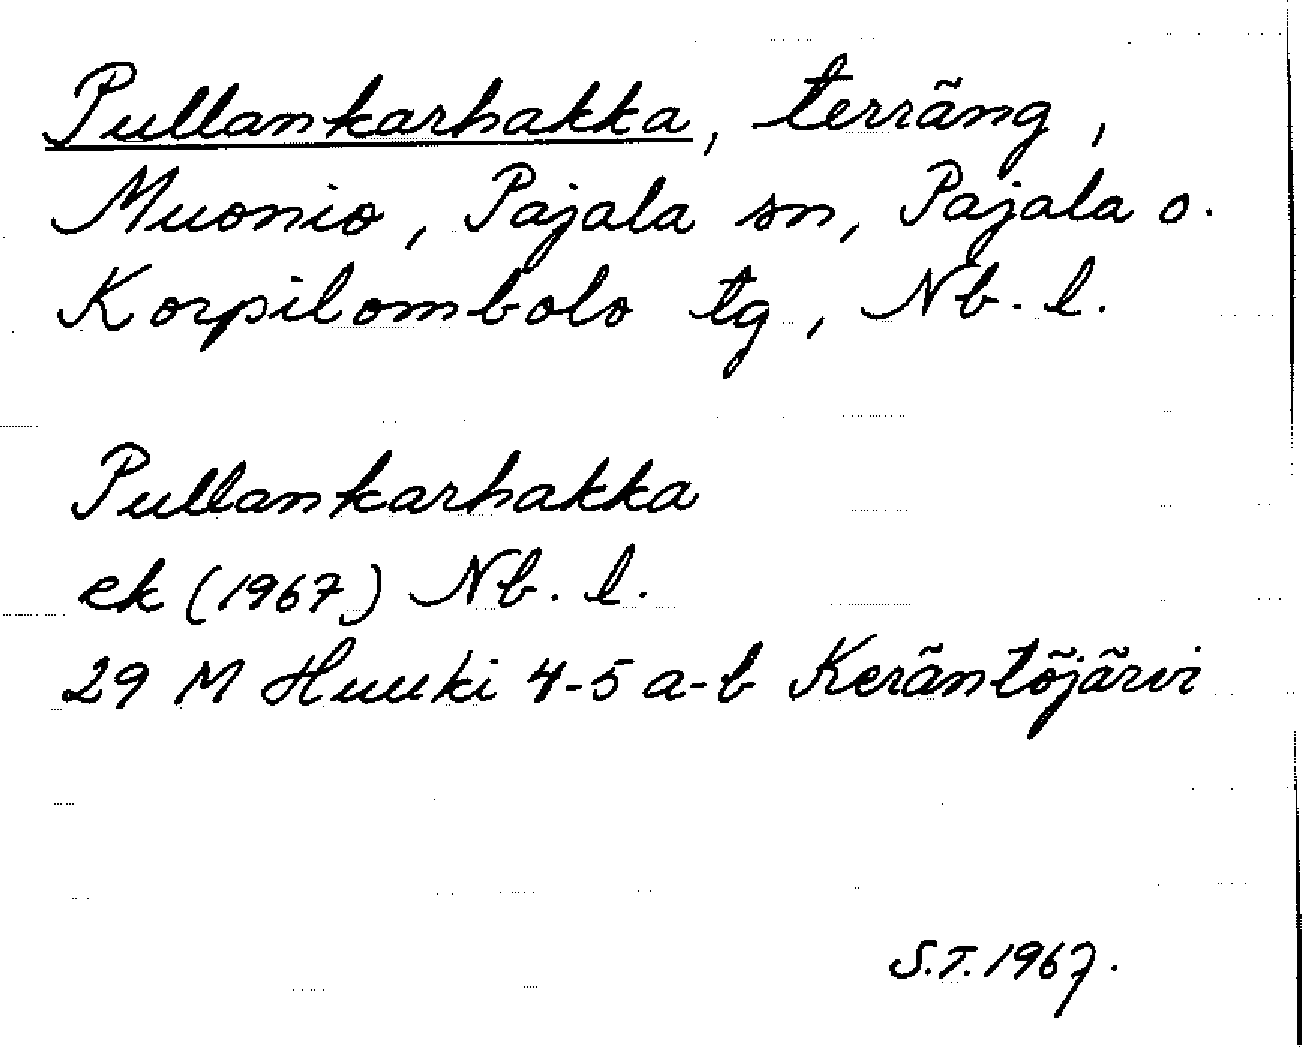 Pullankarhakka, terräng,
Muonio, Pajala sn, Pajala o.
Korpilombolo tg, Nb. l.
Pullankarhakka
ek (1967) Nb. l.
29 M Huuki 4-5 a-b Keräntöjärvi
S.T. 1967.